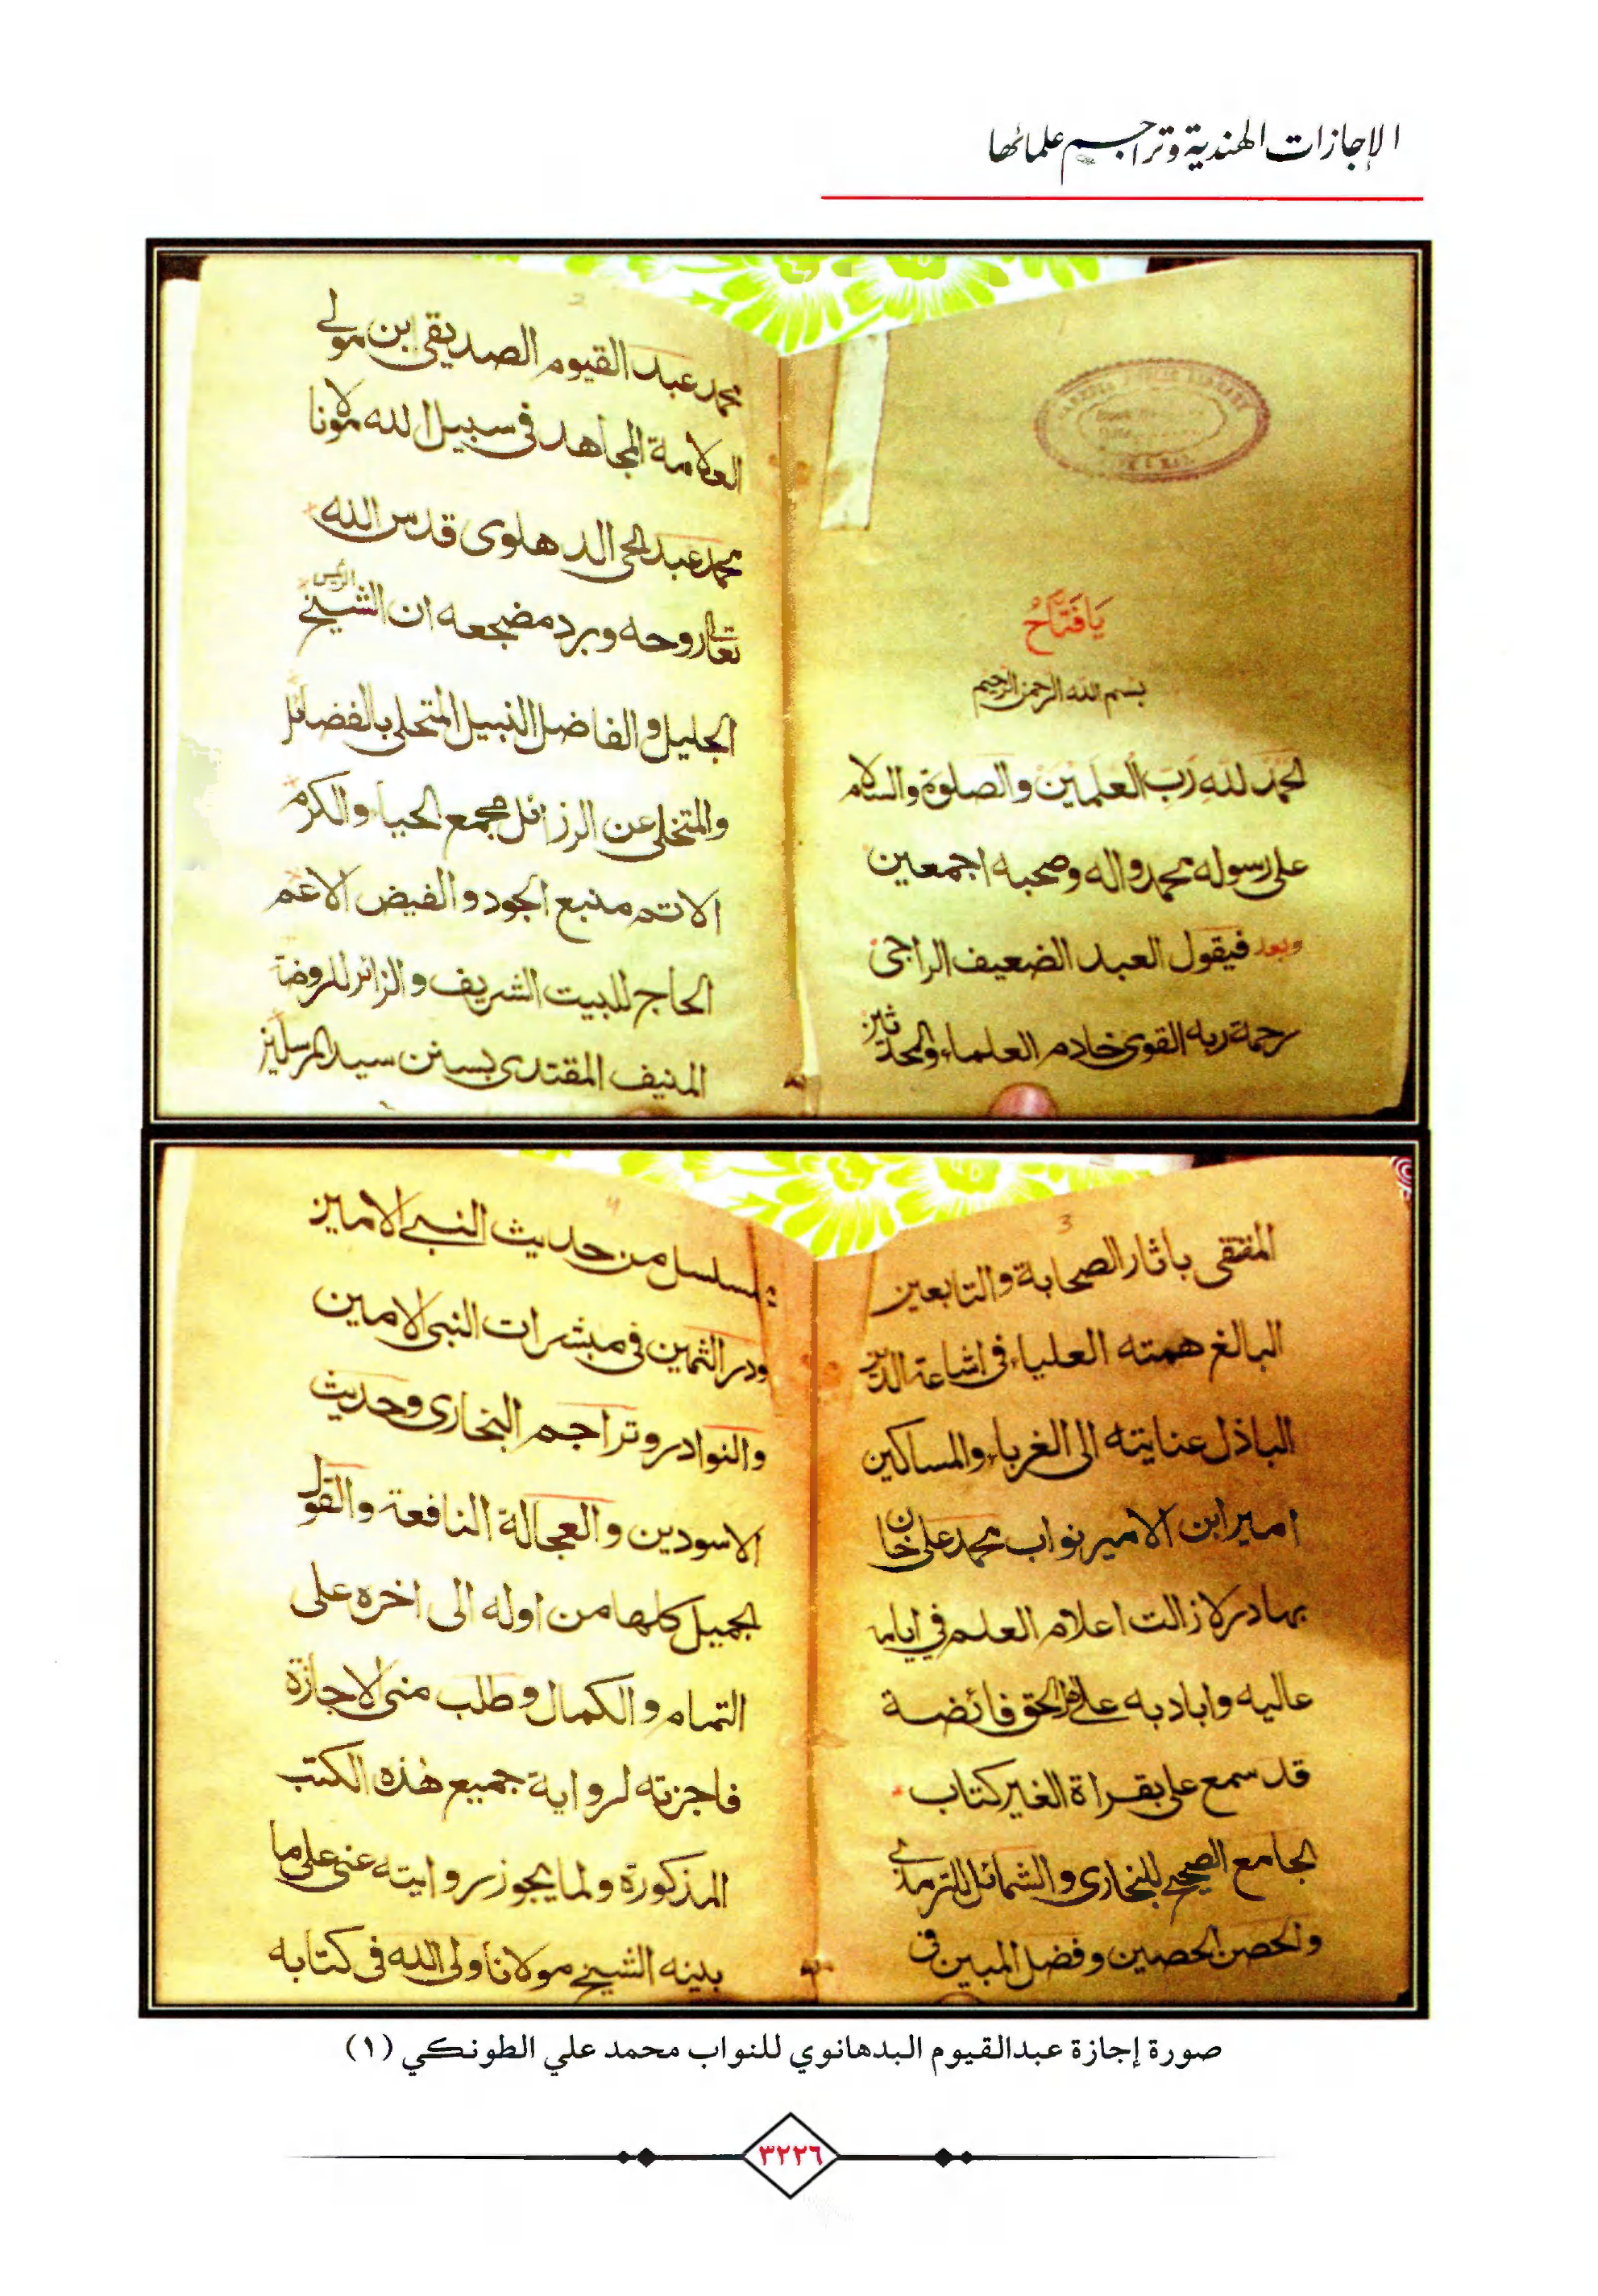 الإجازات الهندية وتراجم علمائها
يَافَتَّاحُ
بسم الله الرحمن الرحيم
الحمد لله رب العلمين والصلوة والسلام
على رسوله محمد واله وصحبه اجمعين
وبعد فيقول العبد الضعيف الراجى
رحمة ربه القوى خادم العلماء والمحدثين
2
محمد عبد القيوم الصديقى ابن مولى
العلامة المجاهد فى سبيل الله مولانا
محمد عبد الحى الدهلوى قدس الله
تعالى روحه وبرد مضجعه ان الشيخ الرئيس
الجليل والفاضل النبيل المتحلى بالفضائل
والمتخلى عن الرزائل مجمع الحياء والكرم
الاتم منبع الجود والفيض الاعم
الحاج للبيت الشريف والزائر للروضة
المنيف المقتدى بسنن سيد المرسلين
3
المقتفى باثار الصحابة والتابعين
البالغ همته العلياء فى اشاعة الدين
الباذل عنايته الى الغرباء والمساكين
امير ابن الامير نواب محمد على خان
بهادر لازالت اعلام العلم فى ايامه
عاليه واياديه على الحق فائضة
قد سمع على بقراة الغير كتاب
الجامع الصحيح للبخارى والشمائل للترمذى
والحصن الحصين وفضل المبين فى
4
المسلسل من حديث النبى الامين
ودر الثمين فى مبشرات النبى الامين
والنوادر وتراجم البخارى وحديث
الاسودين والعجالة النافعة والقول
الجميل كلها من اوله الى اخره على
التمام والكمال وطلب منى الاجازة
فاجزته لرواية جميع هذه الكتب
المذكورة ولما يجوز روايته عنى على ما
بينه الشيخ مولانا ولى الله فى كتابه
صورة إجازة عبدالقيوم البدهانوي للنواب محمد علي الطونكي (١)
٣٢٢٦